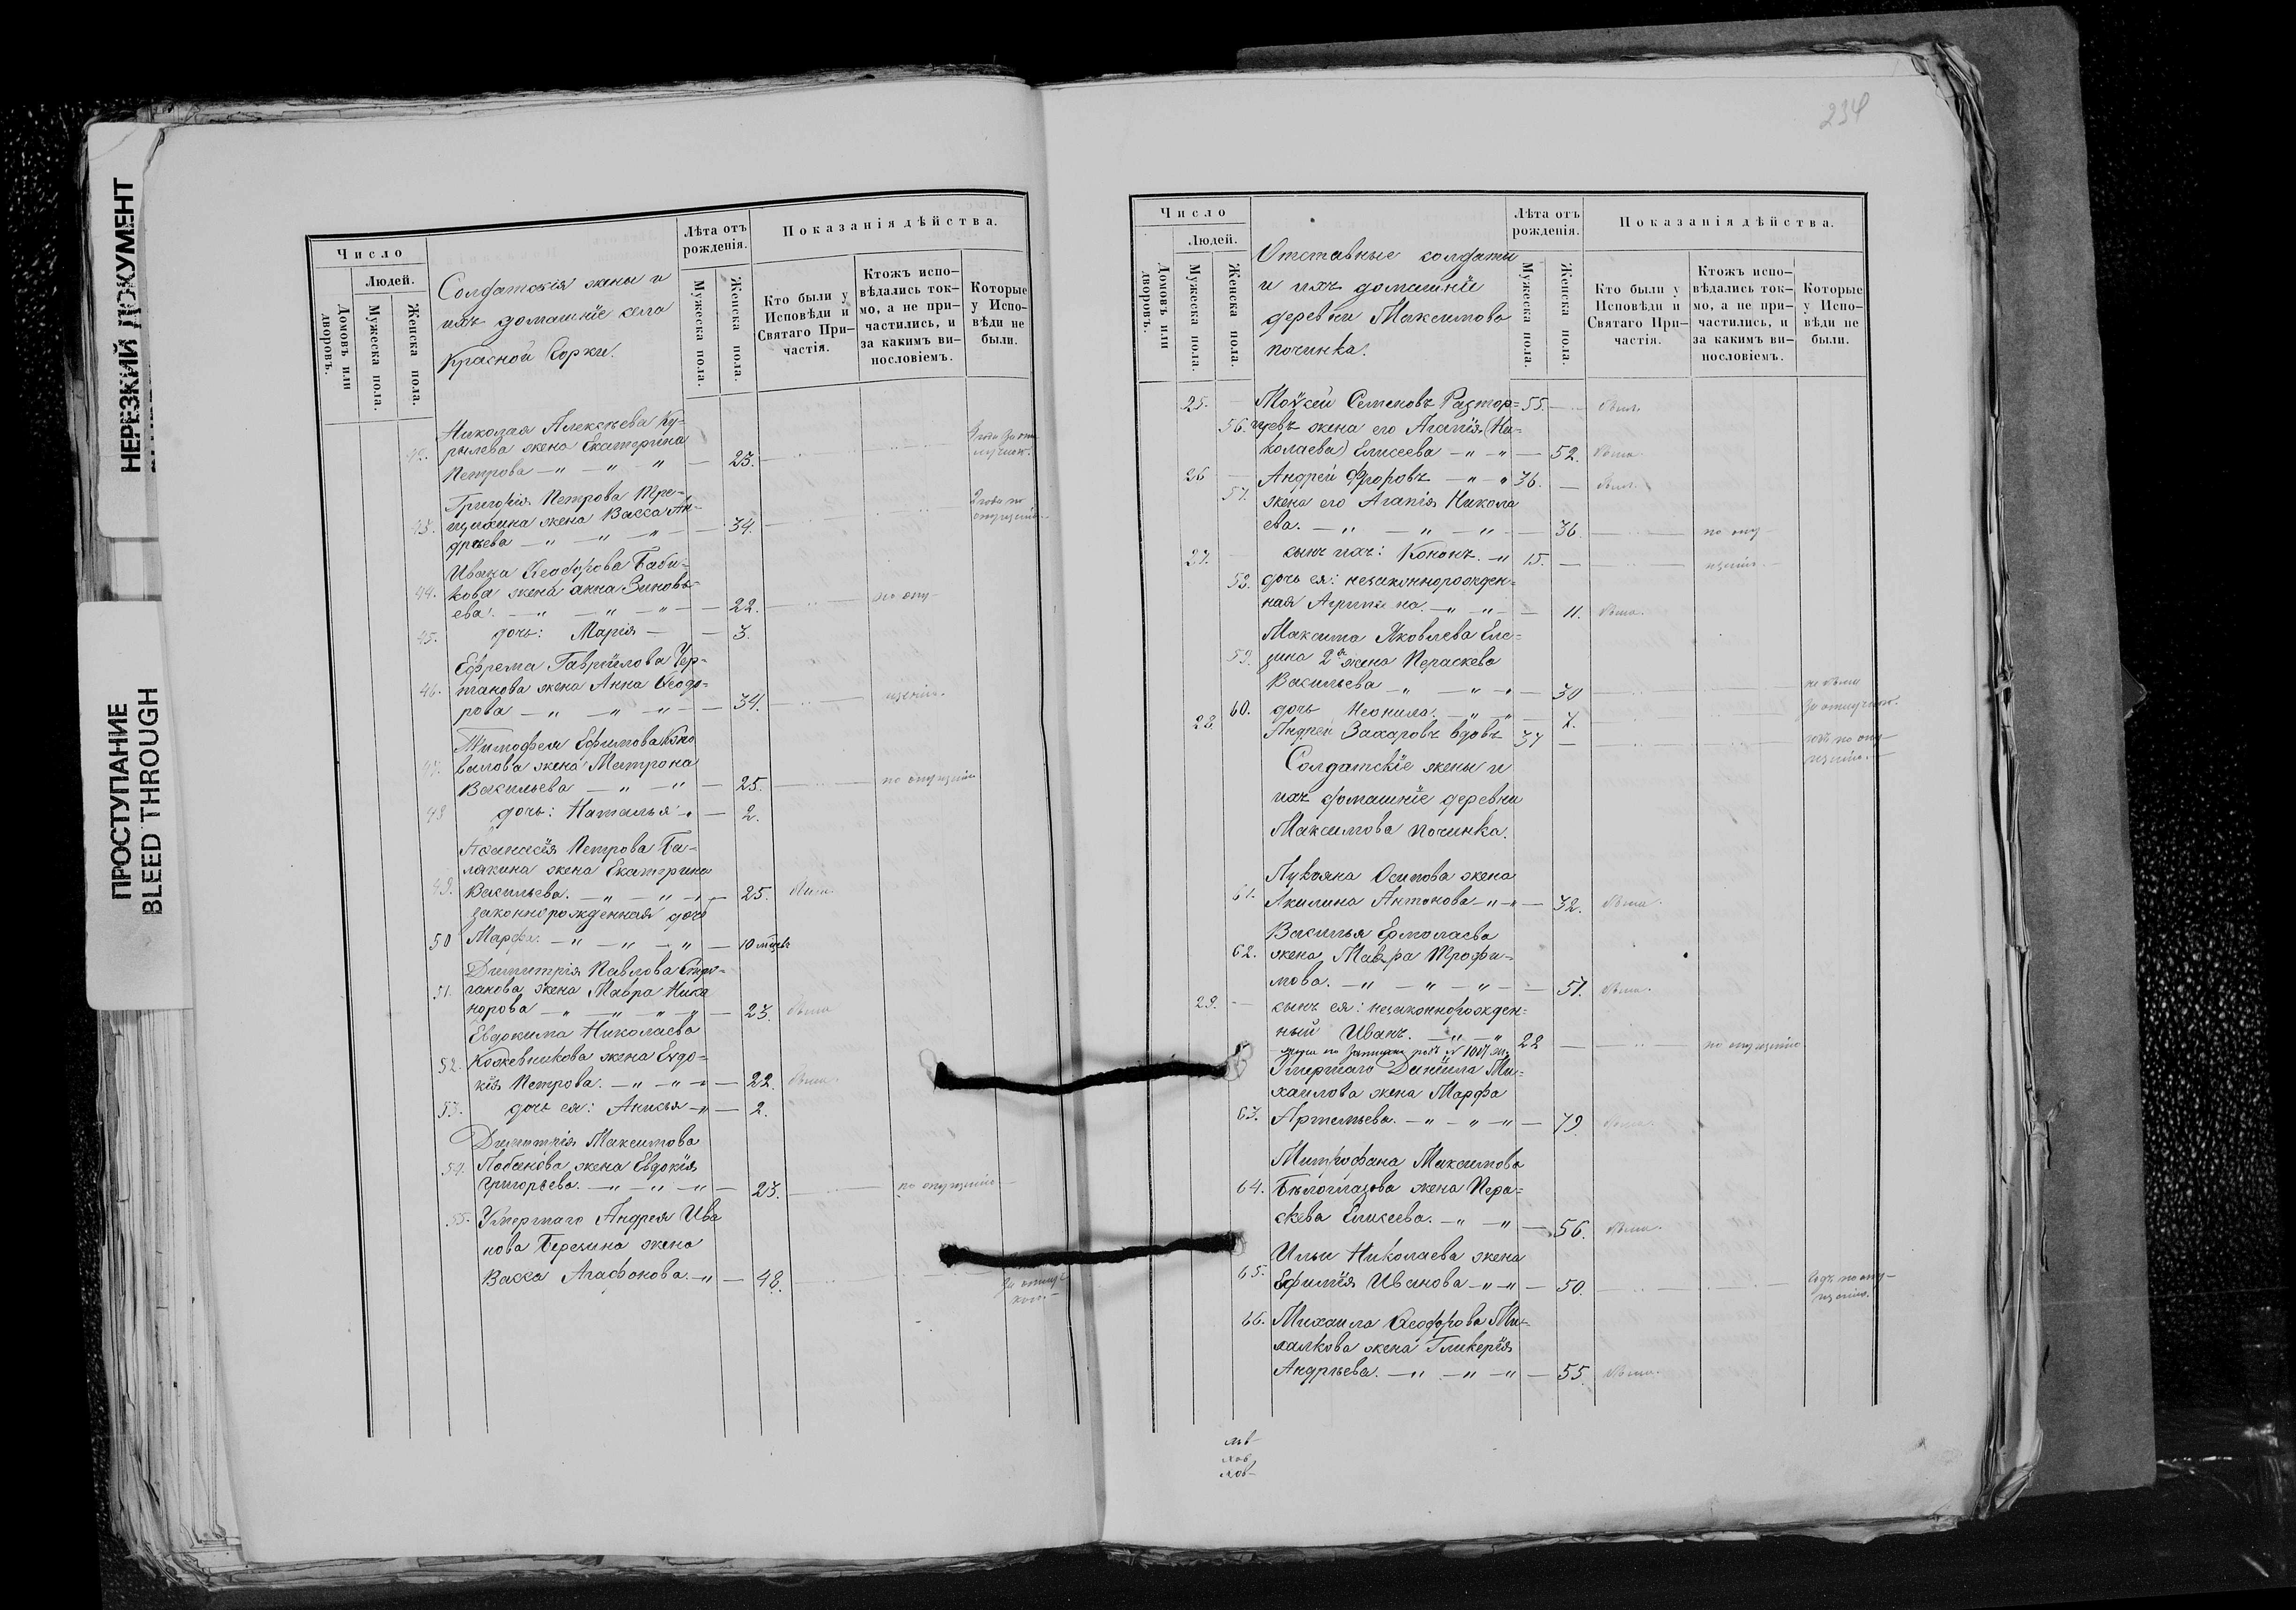 НЕРЕЗКИЙ ДОКУМЕНТ
ПРОСТУПАНИЕ
BLEED THROUGH
Число
Людей.
Домовъ или дворовъ.
Мужеска пола.
Женска пола.
Солдатскія жены и
ихъ домашніе села
Красной Горки.
Лѣта отъ рожденія.
Мужеска пола.
Женска пола.
Показанія дѣйства.
Кто были у Исповѣди и Святаго Причастія.
Ктожъ исповѣдались токмо, а не причастились, и за какимъ винословіемъ.
Которые у Исповѣди не были.
Николая Алексѣева Ку-
42. рылева жена Екатерина
Петрова — " — " — " — 23.
Григорія Петрова Тре-
43. пухина жена Васса Ан-
дреева — " — " — " — 34.
Ивана Ѳеодорова Баби-
44. кова жена Анна Зиновь-
ева. — " — " — " — 22. по опу-
45. дочь: Марія — 3.
Ефрема Гаврилова Чер-
46. танова жена Анна Ѳеодо-
рова — " — " — " — 34. щенію.
Тимофея Ефимова Коно
47. валова жена Матрона
Васильева — " — " — 25. по опущенію
48 дочь: Наталья " — 2.
Аѳанасія Петрова Ба-
лакина жена Екатерина
49. Васильева. — " — " — " — 25. была
законнорожденная дочь
50 Марфа. — " — " — " — 10 мѣсяцъ
Димитрія Павлова Стро-
51. ганова жена Мавра Ника
норова — " — " — " — 23. была
Евдокима Николаева
52. Кожевникова жена Евдо-
кія Петрова. — " — " — " — 22. была.
53. дочь ея: Анисья — " — 2.
Димитрія Максимова
54. Лобанова жена Евдокія
Григорьева. — " — " — " — 23. по опущенію
55. Умершаго Андрея Ива
нова Березина жена
Васса Агафонова. — " — 48. за отлуч-
кою.
234
Число
Людей.
Домовъ или дворовъ.
Мужеска пола.
Женска пола.
Отставные солдаты
и ихъ домашніе
деревни Максимова
починка.
Лѣта отъ рожденія.
Мужеска пола.
Женска пола.
Показанія дѣйства.
Кто были у Исповѣди и Святаго Причастія.
Ктожъ исповѣдались токмо, а не причастились, и за какимъ винословіемъ.
Которые у Исповѣди не были.
25. Моѵсей Семеновъ Разтор= 55. былъ
56. гуевъ жена его Агапія (Ни-
колаева) Елисеева — " — " — 52. была
26 Андрей Ѳедоровъ — " — " 36. — былъ.
57. жена его Агапія Никола
ева. — " — " — " — 36. по опу-
27. сынъ ихъ: Кононъ. — " 15. щенію.
58. дочь ея: незаконнорожден=
ная Агрипина. — " — " — 11. была.
Максима Яковлева Еле=
59. зина 2я жена Пераскева
Васильева — " — " — " — 30 не были
60. дочь Неонила. — " — " — 7. за отлучкою.
28. Андрей Захаровъ вдовъ 37 — годъ по опу-
щенію.
Солдатскіе жены и
ихъ домашніе деревни
Максимова починка.
Лукояна Осипова жена
61. Акилина Антонова — " — " — 32. была.
Василья Ермолаева
62. жена Мавра Трофи=
мова. — " — " — " — 51. была.
29. сынъ ея: незаконнорожден=
ный Иванъ. — " — " 22 — по опущенію
Умершаго Даніила Ми=
хаилова жена Марфа
63. Артемьева. — " — " — " — 79. была.
Митрофана Максимова
64. Бѣлоглазова жена Пера=
скева Елисеева. — " — " — 56. была.
Ильи Николаева жена
65. Ефимія Иванова — " — " — 50. годъ по опу-
щенію.
66. Михаила Ѳеодорова Ми=
халкова жена Гликерія
Андрѣева. — " — " — " — 55. была.